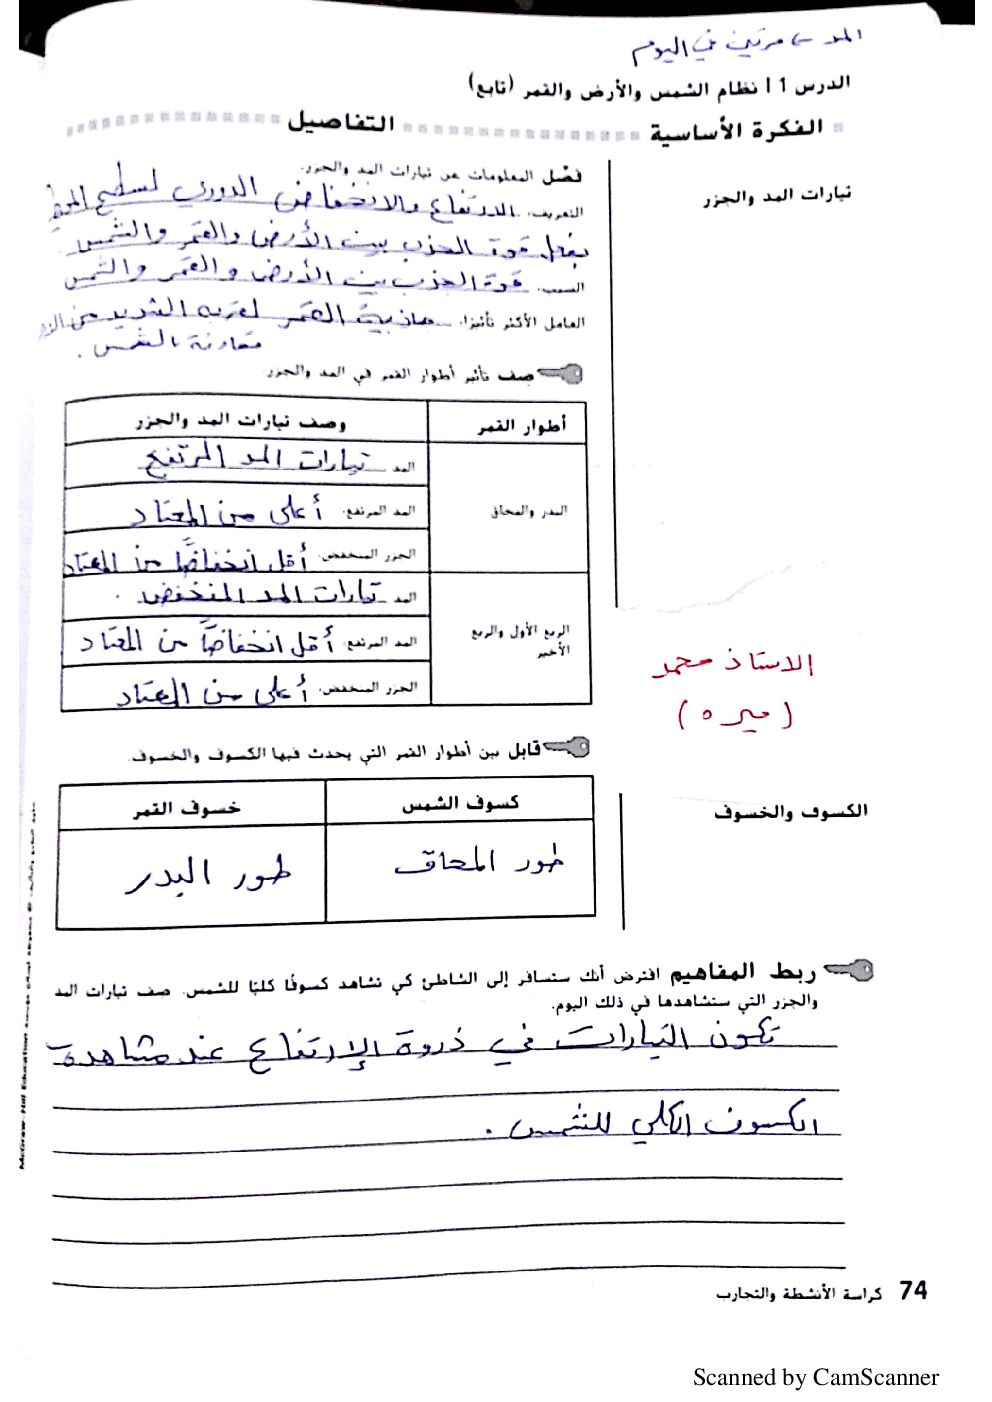 المد مرتين في اليوم
الدرس 1 | نظام الشمس والأرض والقمر (تابع)
الفكرة الأساسية التفاصيل
تيارات المد والجزر
فصّل المعلومات عن تيارات المد والجزر.
التعريف: الارتفاع والانخفاض الدوري لسطح المحيط
بفعل قوة الجذب بين الأرض والقمر والشمس.
السبب: قوة الجذب بين الأرض والقمر والشمس
العامل الأكثر تأثيرًا: جاذبية القمر لقربه الشديد من
مقارنة بالشمس.
صف تأثير أطوار القمر في المد والجزر.
أطوار القمر وصف تيارات المد والجزر
البدر والمحاق
المد تيارات المد المرتفع
المد المرتفع: أعلى من المعتاد
الجزر المنخفض: أقل انخفاضًا من المعتاد
الربع الأول والربع الأخير
المد تيارات المد المنخفض.
المد المرتفع: أقل انخفاضًا من المعتاد
الجزر المنخفض: أعلى من المعتاد
الاستاذ محمد
(ميره)
الكسوف والخسوف
قابل بين أطوار القمر التي يحدث فيها الكسوف والخسوف.
كسوف الشمس خسوف القمر
طور المحاق طور البدر
ربط المفاهيم افترض أنك ستسافر إلى الشاطئ كي تشاهد كسوفًا كليًا للشمس. صف تيارات المد
والجزر التي ستشاهدها في ذلك اليوم.
تكون التيارات في ذروة الإرتفاع عند مشاهدة
الكسوف الكلي للشمس.
74 كراسة الأنشطة والتجارب
Scanned by CamScanner